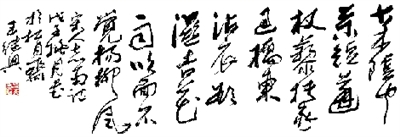 古木陰中
系短蓬
杖藜扶我
過橋東
沾衣欲
濕杏花
雨吹面不
寒楊柳風
宋人志南詩
戊子月
於月
王繼興